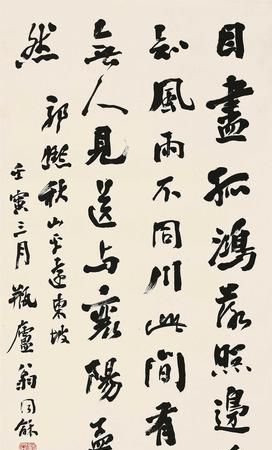 目盡孤鴻落照邊
知風雨不同川此間有
無人見送与襄陽孟
然
郭熙秋山平遠東坡
壬寅三月瓶廬翁同龢